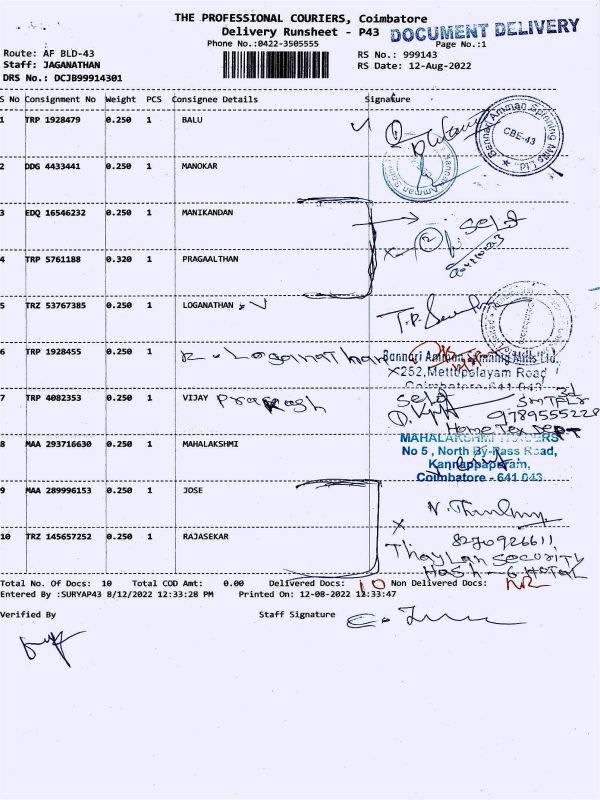 THE PROFESSIONAL COURIERS, Coimbatore
Delivery Runsheet - P43
DOCUMENT DELIVERY
Phone No.:0422-3505555
Page No.:1
Route: AF BLD-43
RS No.: 999143
Staff: JAGANATHAN
RS Date: 12-Aug-2022
DRS No.: DCJB99914301
S No Consignment No Weight PCS Consignee Details Signature
1 TRP 1928479 0.250 1 BALU
Bannari Amman Spinning Mills Ltd.
CBE-43
2 DDG 4433441 0.250 1 MANOKAR
3 EDQ 16546232 0.250 1 MANIKANDAN
Self
4 TRP 5761188 0.320 1 PRAGAALTHAN
2
5 TRZ 53767385 0.250 1 LOGANATHAN
6 TRP 1928455 0.250 1 R. Loganathan
Bannari Amman Spinning Mills Ltd.
252, Mettupalayam Road
Coimbatore-641 043
7 TRP 4082353 0.250 1 VIJAY Prakash
Self
9789555228
Home Tex DEPT
8 MAA 293716630 0.250 1 MAHALAKSHMI
MAHALAKSHMI
No 5, North By-Pass Road,
Kannappapuram,
Coimbatore - 641 043.
9 MAA 289996153 0.250 1 JOSE
10 TRZ 145657252 0.250 1 RAJASEKAR
8270926611
SECURITY
Total No. Of Docs: 10 Total COD Amt: 0.00 Delivered Docs: 10 Non Delivered Docs:
Entered By :SURYAP43 8/12/2022 12:33:28 PM Printed On: 12-08-2022 12:33:47
Verified By
Staff Signature